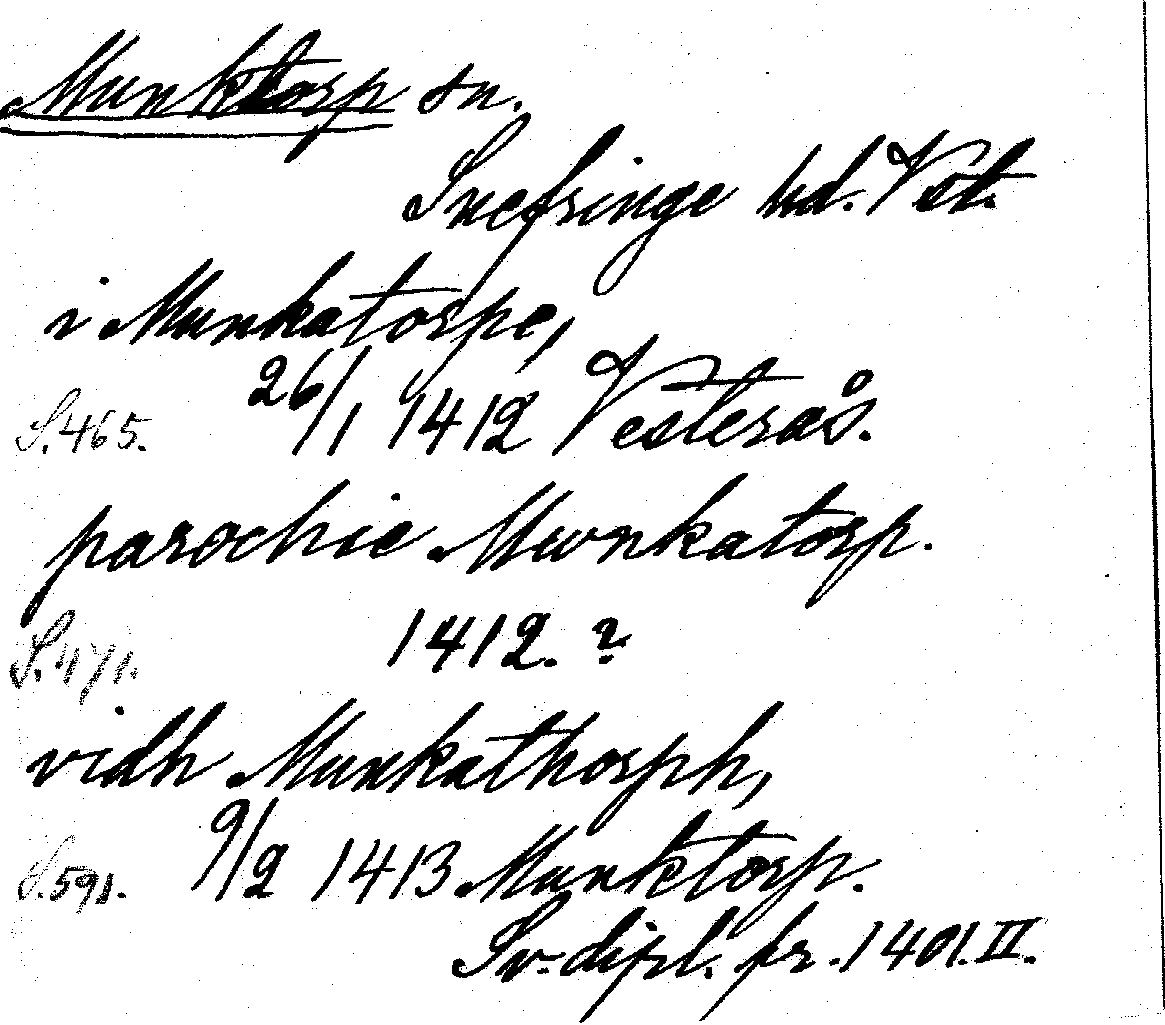 Munktorp sn.
Snefringe hd. Vstl.
i Munkatorpe,
S. 465. 26/1 1412 Vesterås.
parochie Munkatorp.
S. 471. 1412. ?
vidh Munkathorph,
S. 591. 9/2 1413 Munktorp.
Sv. dipl. fr. 1401. II.